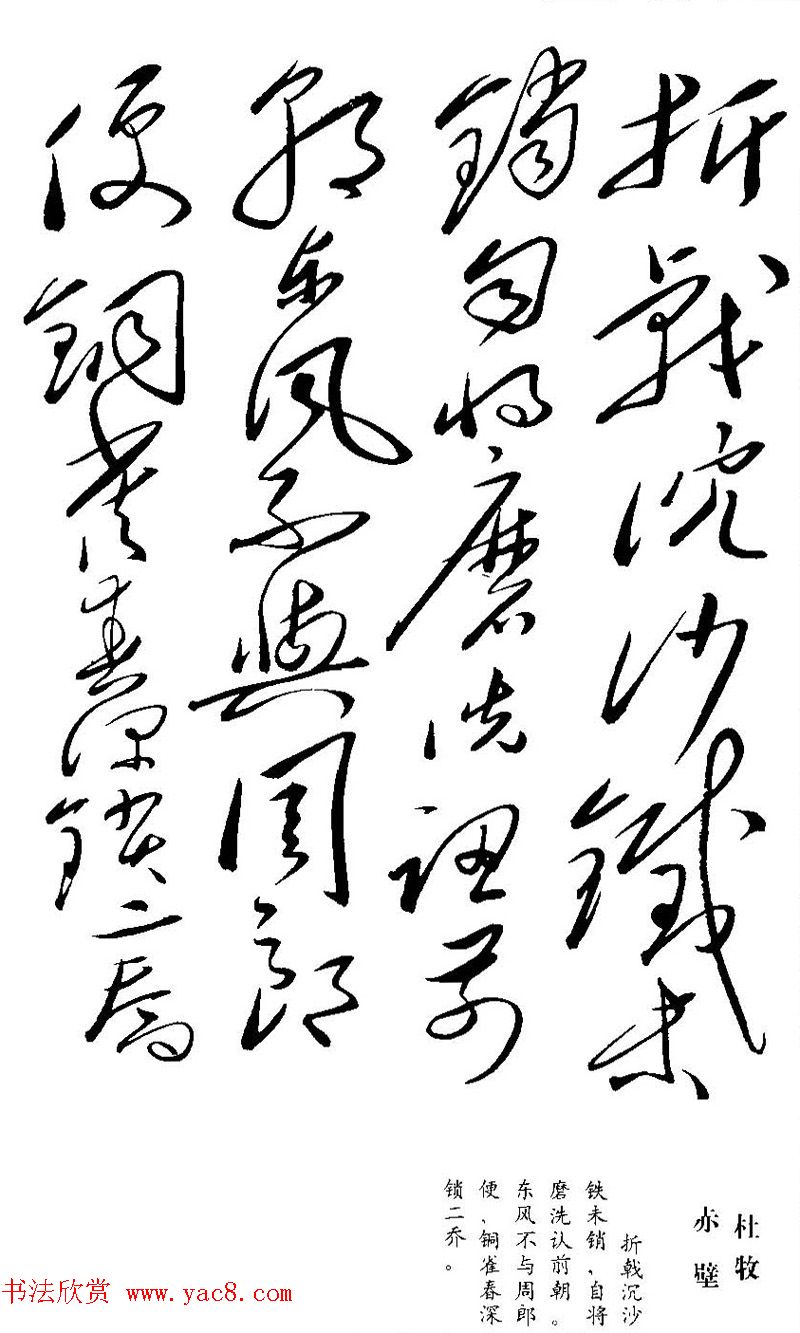 折戟沉沙鐵未
銷自将磨洗認前
朝東風不與周郎
便銅雀春深鎖二喬
杜牧
赤壁
折戟沉沙
铁未销，自将
磨洗认前朝。
东风不与周郎
便，铜雀春深
锁二乔。
书法欣赏 www.yac8.com